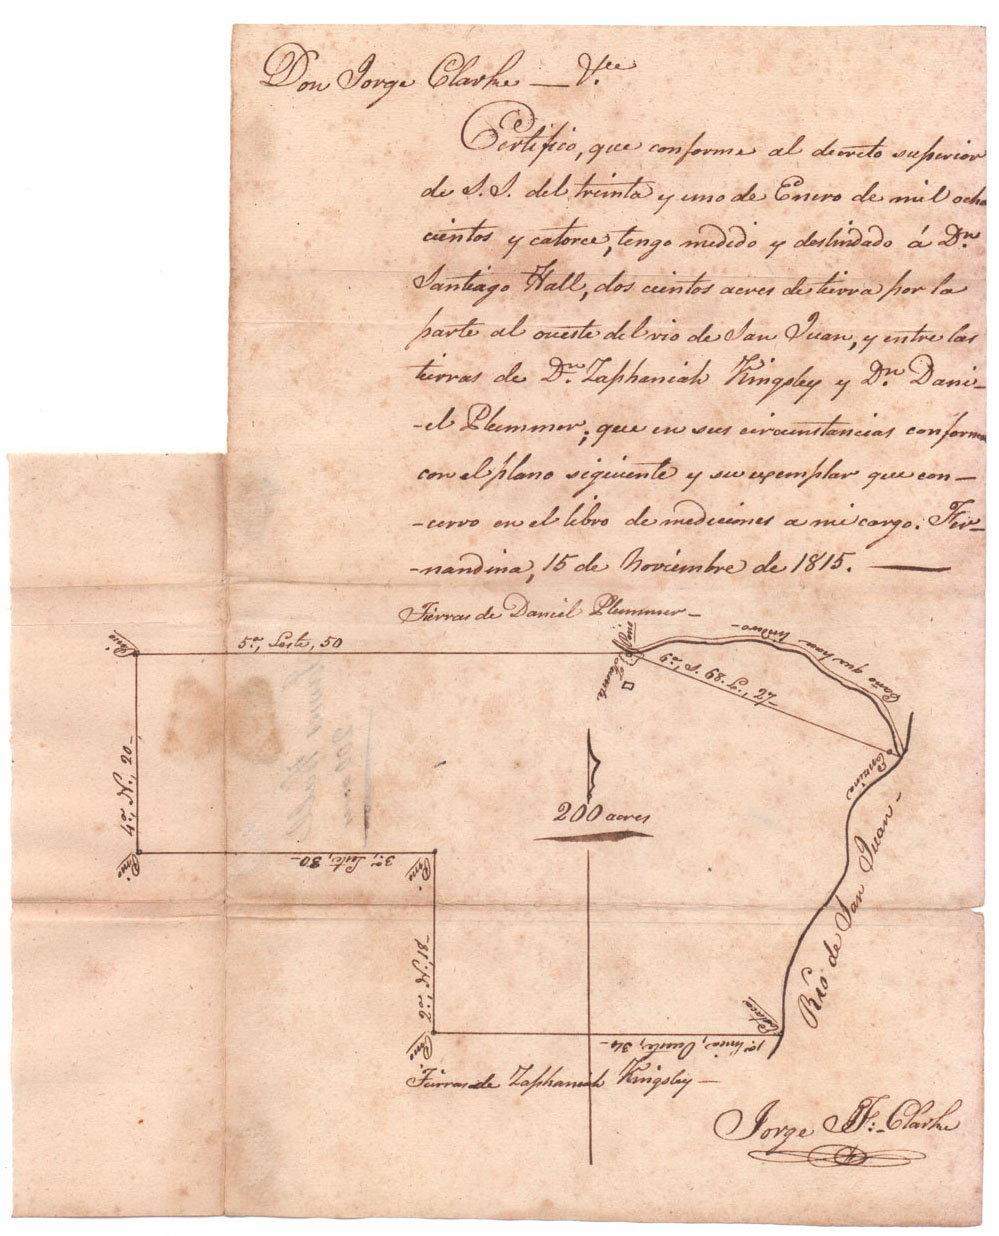 Don Jorge Clarke — V.ce
Certifico, que conforme al decreto superior
de S. S. del treinta y uno de Enero de mil ocho
cientos y catorce, tengo medido y deslindado á Dn.
Santiago Hall, dos cientos acres de tierra por la
parte al oueste del rio de San Juan, y entre las
tierras de Dn. Zaphaniah Kingsley y Dn. Dani-
-el Plummer; que en sus circunstancias conforma
con el plano siguiente y su exemplar que con-
-cervo en el libro de mediciones a mi cargo. Fer-
-nandina, 15 de Noviembre de 1815. —
Tierras de Daniel Plummer —
Pino
5a., Leste, 50
Pino
Fuente
6a. S. 69 E., 27
Caño que hace lindero
4a. N., 20 —
200 acres
Pino
3a., Leste, 30 —
Pino
2a., N. 18 —
Rio de San Juan —
Estaca
Pino
1a. linea, Oueste, 34 —
Tierras de Zaphaniah Kingsley —
Jorge J. F. Clarke